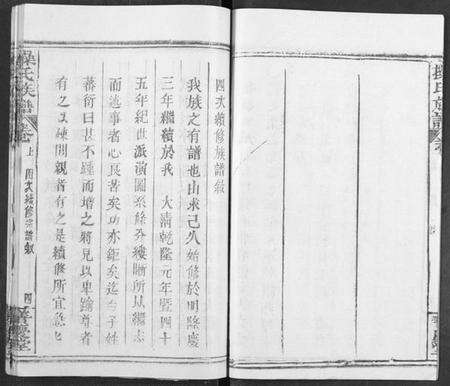 四次續修族譜敘
我族之有譜也由來已久始修於明隆慶
三年繼續於我 大清乾隆元年暨四十
五年紀世派演圖系條分縷晰所以繼志
而述事者心良苦矣功亦鉅矣迄今子姓
蕃衍日甚不踵而增之將見以卑踰尊者
有之以疎間親者有之是續修所宜急也
操氏族譜
卷 上 四次續修宗譜敘
四
操氏族譜